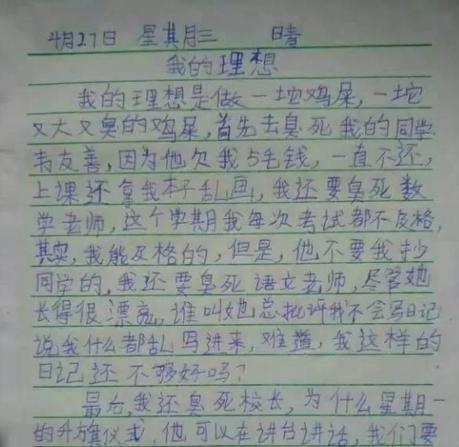 4月27日 星期三 晴
我的理想
我的理想是做一坨鸡屎,一坨
又大又臭的鸡屎,首先去臭死我的同学
韦友善,因为他欠我5毛钱,一直不还,
上课还拿我本子乱画,我还要臭死数
学老师,这个学期我每次考试都不及格,
其实,我能及格的,但是,他不要我抄
同学的,我还要臭死语文老师,尽管她
长得很漂亮,谁叫她总批评我不会写日记
说我什么都乱写进来,难道,我这样的
日记还不够好吗?
最后,我还臭死校长,为什么星期一
的升旗仪式,他可以在讲台讲话,我们要